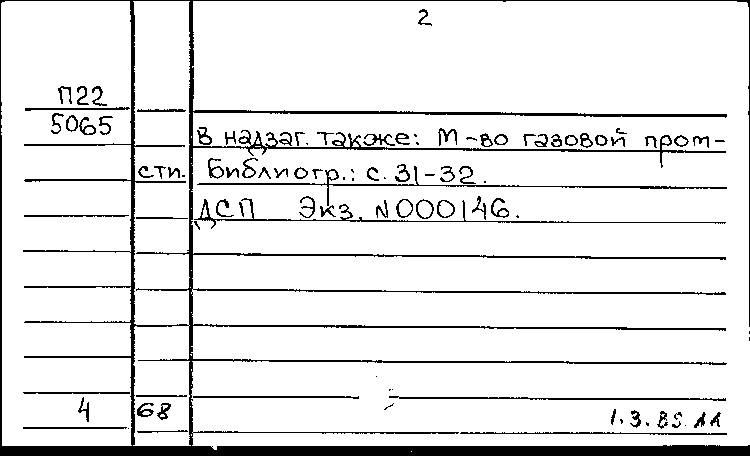 2
П22
5065
В надзаг. также: М-во газовой пром-
сти. Библиогр.: с. 31-32.
ДСП Экз. N000146.
4 68